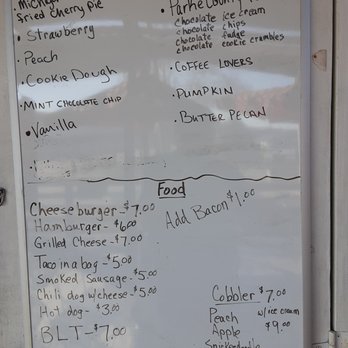 Michigan
Fried Cherry pie
• Strawberry
• Peach
• Cookie Dough
• Mint Chocolate Chip
• Vanilla
Parke County
chocolate ice cream
chocolate chips
chocolate fudge
chocolate cookie crumbles
• Coffee Lovers
• Pumpkin
• Butter Pecan
Food
Cheeseburger - $7.00
Hamburger - $6.00
Grilled Cheese - $7.00
Taco in a bag - $5.00
Smoked Sausage - $5.00
Chili dog w/cheese - $5.00
Hot dog - $3.00
BLT - $7.00
Add Bacon $1.00
Cobbler - $7.00
Peach w/ice cream
Apple $9.00